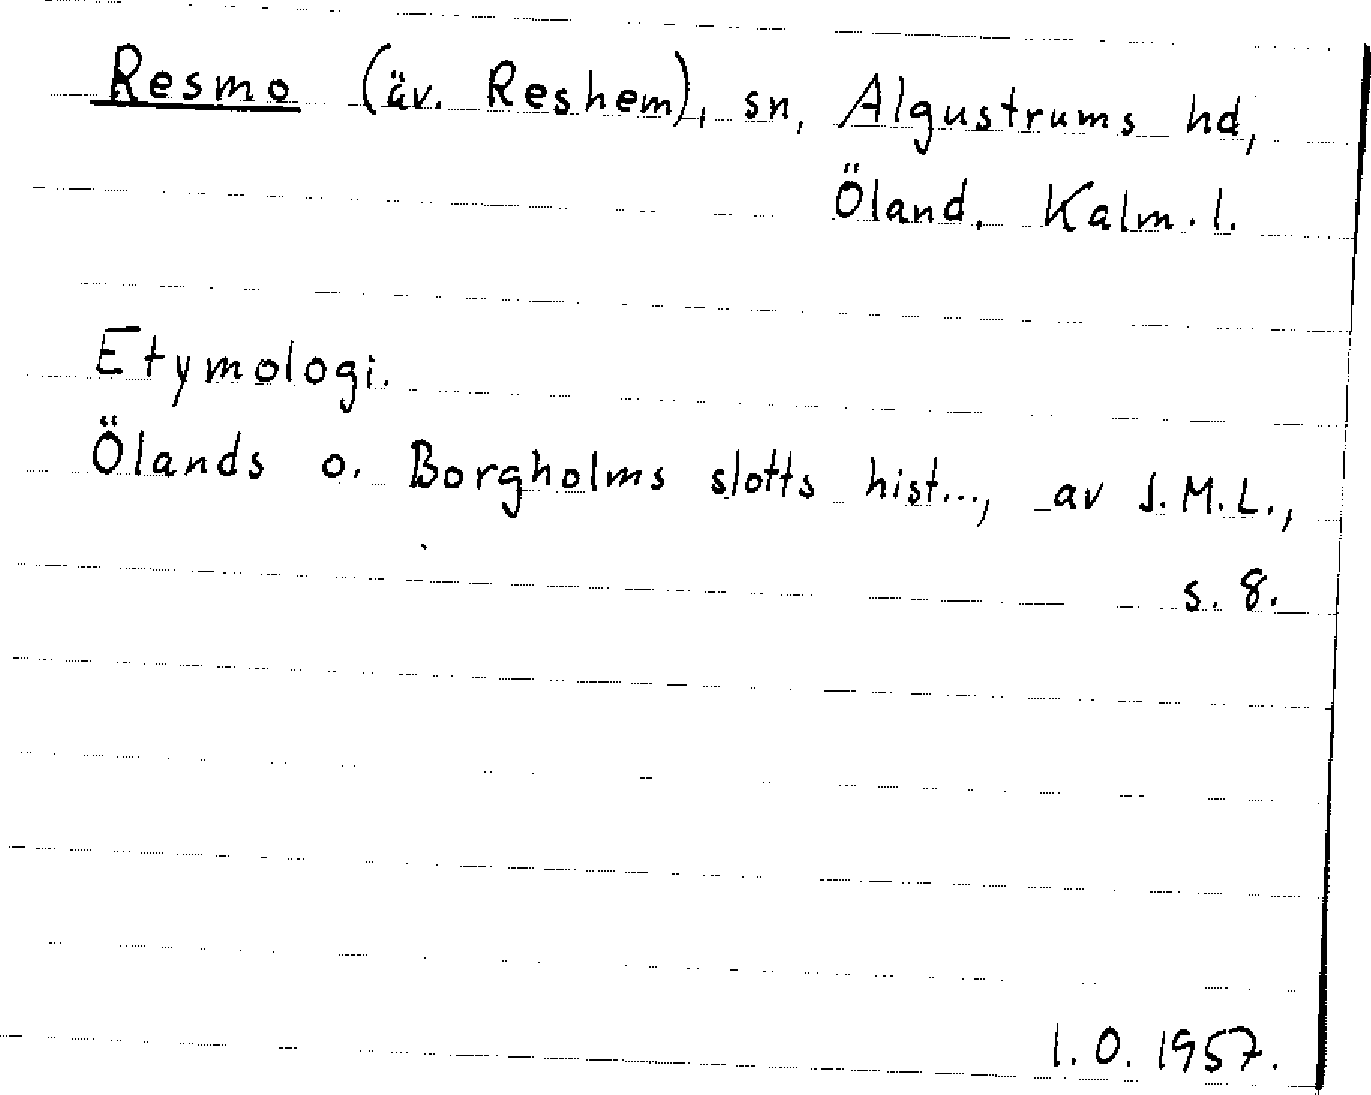 Resmo (äv. Reshem), sn, Algustrums hd,
Öland. Kalm. l.
Etymologi.
Ölands o. Borgholms slotts hist..., av J.M.L.,
s. 8.
I. O. 1957.